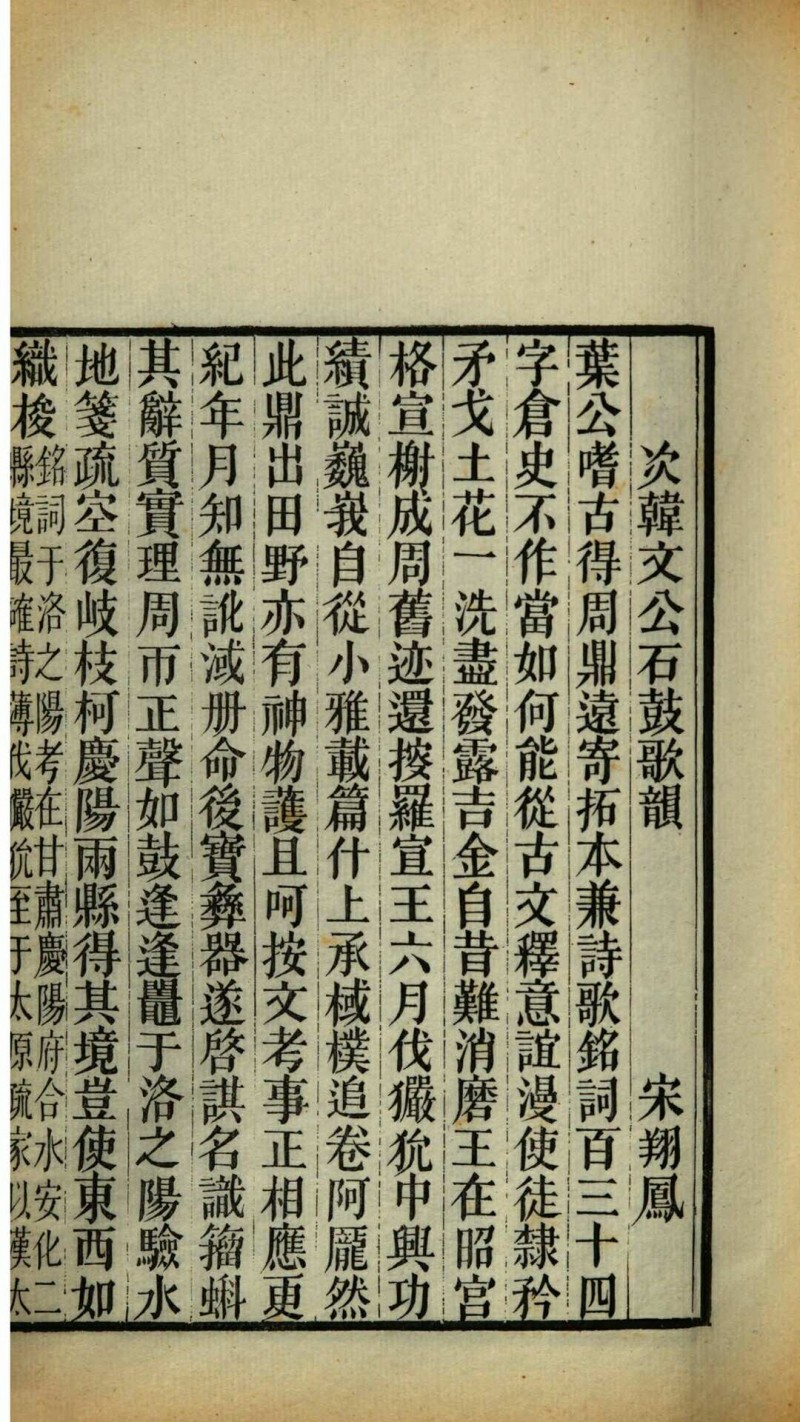 次韓文公石鼓歌韻　宋翔鳳
葉公嗜古得周鼎遠寄拓本兼詩歌銘詞百三十四
字倉史不作當如何能從古文釋意誼漫使徒隸矜
矛戈土花一洗盡發露吉金自昔難消磨王在昭宮
格宣榭成周舊迹還按羅宣王六月伐玁狁中興功
績誠巍峩自從小雅載篇什上承棫樸追卷阿龎然
此鼎出田野亦有神物護且呵按文考事正相應更
紀年月知無訛減册命後寶彝器遂啓諆名識籀蝌
其辭質實理周帀正聲如鼓逢逢鼉于洛之陽驗水
地箋疏空復岐枝柯慶陽兩縣得其境豈使東西如
織梭
銘詞于洛之陽考在甘肅慶陽府合水安化二
縣境最確詩薄伐玁狁至于太原疏家以漢太